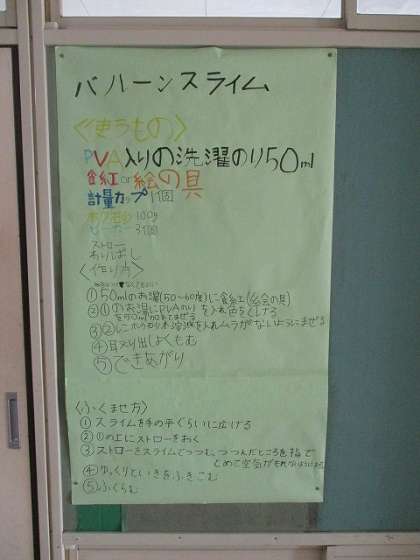 バルーンスライム
〈使うもの〉
PVA入りの洗濯のり50ml
食紅or絵の具
計量カップ1個
ホウ砂 100g
ビーカー 3個
ストロー
わりばし
〈作り方〉
①50mlのお湯(50〜60度)に食紅(絵の具)
②①のお湯にPVAのりを入れ色をつける
③②に を入れムラがないようにまぜる
④取り出しよくもむ
⑤できあがり
〈ふくませ方〉
①スライムを手の平ぐらいに広げる
②①の上にストローをおく
③ストローをスライムでつつむ、つつんだところを指で
とめて空気がもれないようにする
④ゆっくりといきをふきこむ
⑤ふくらむ